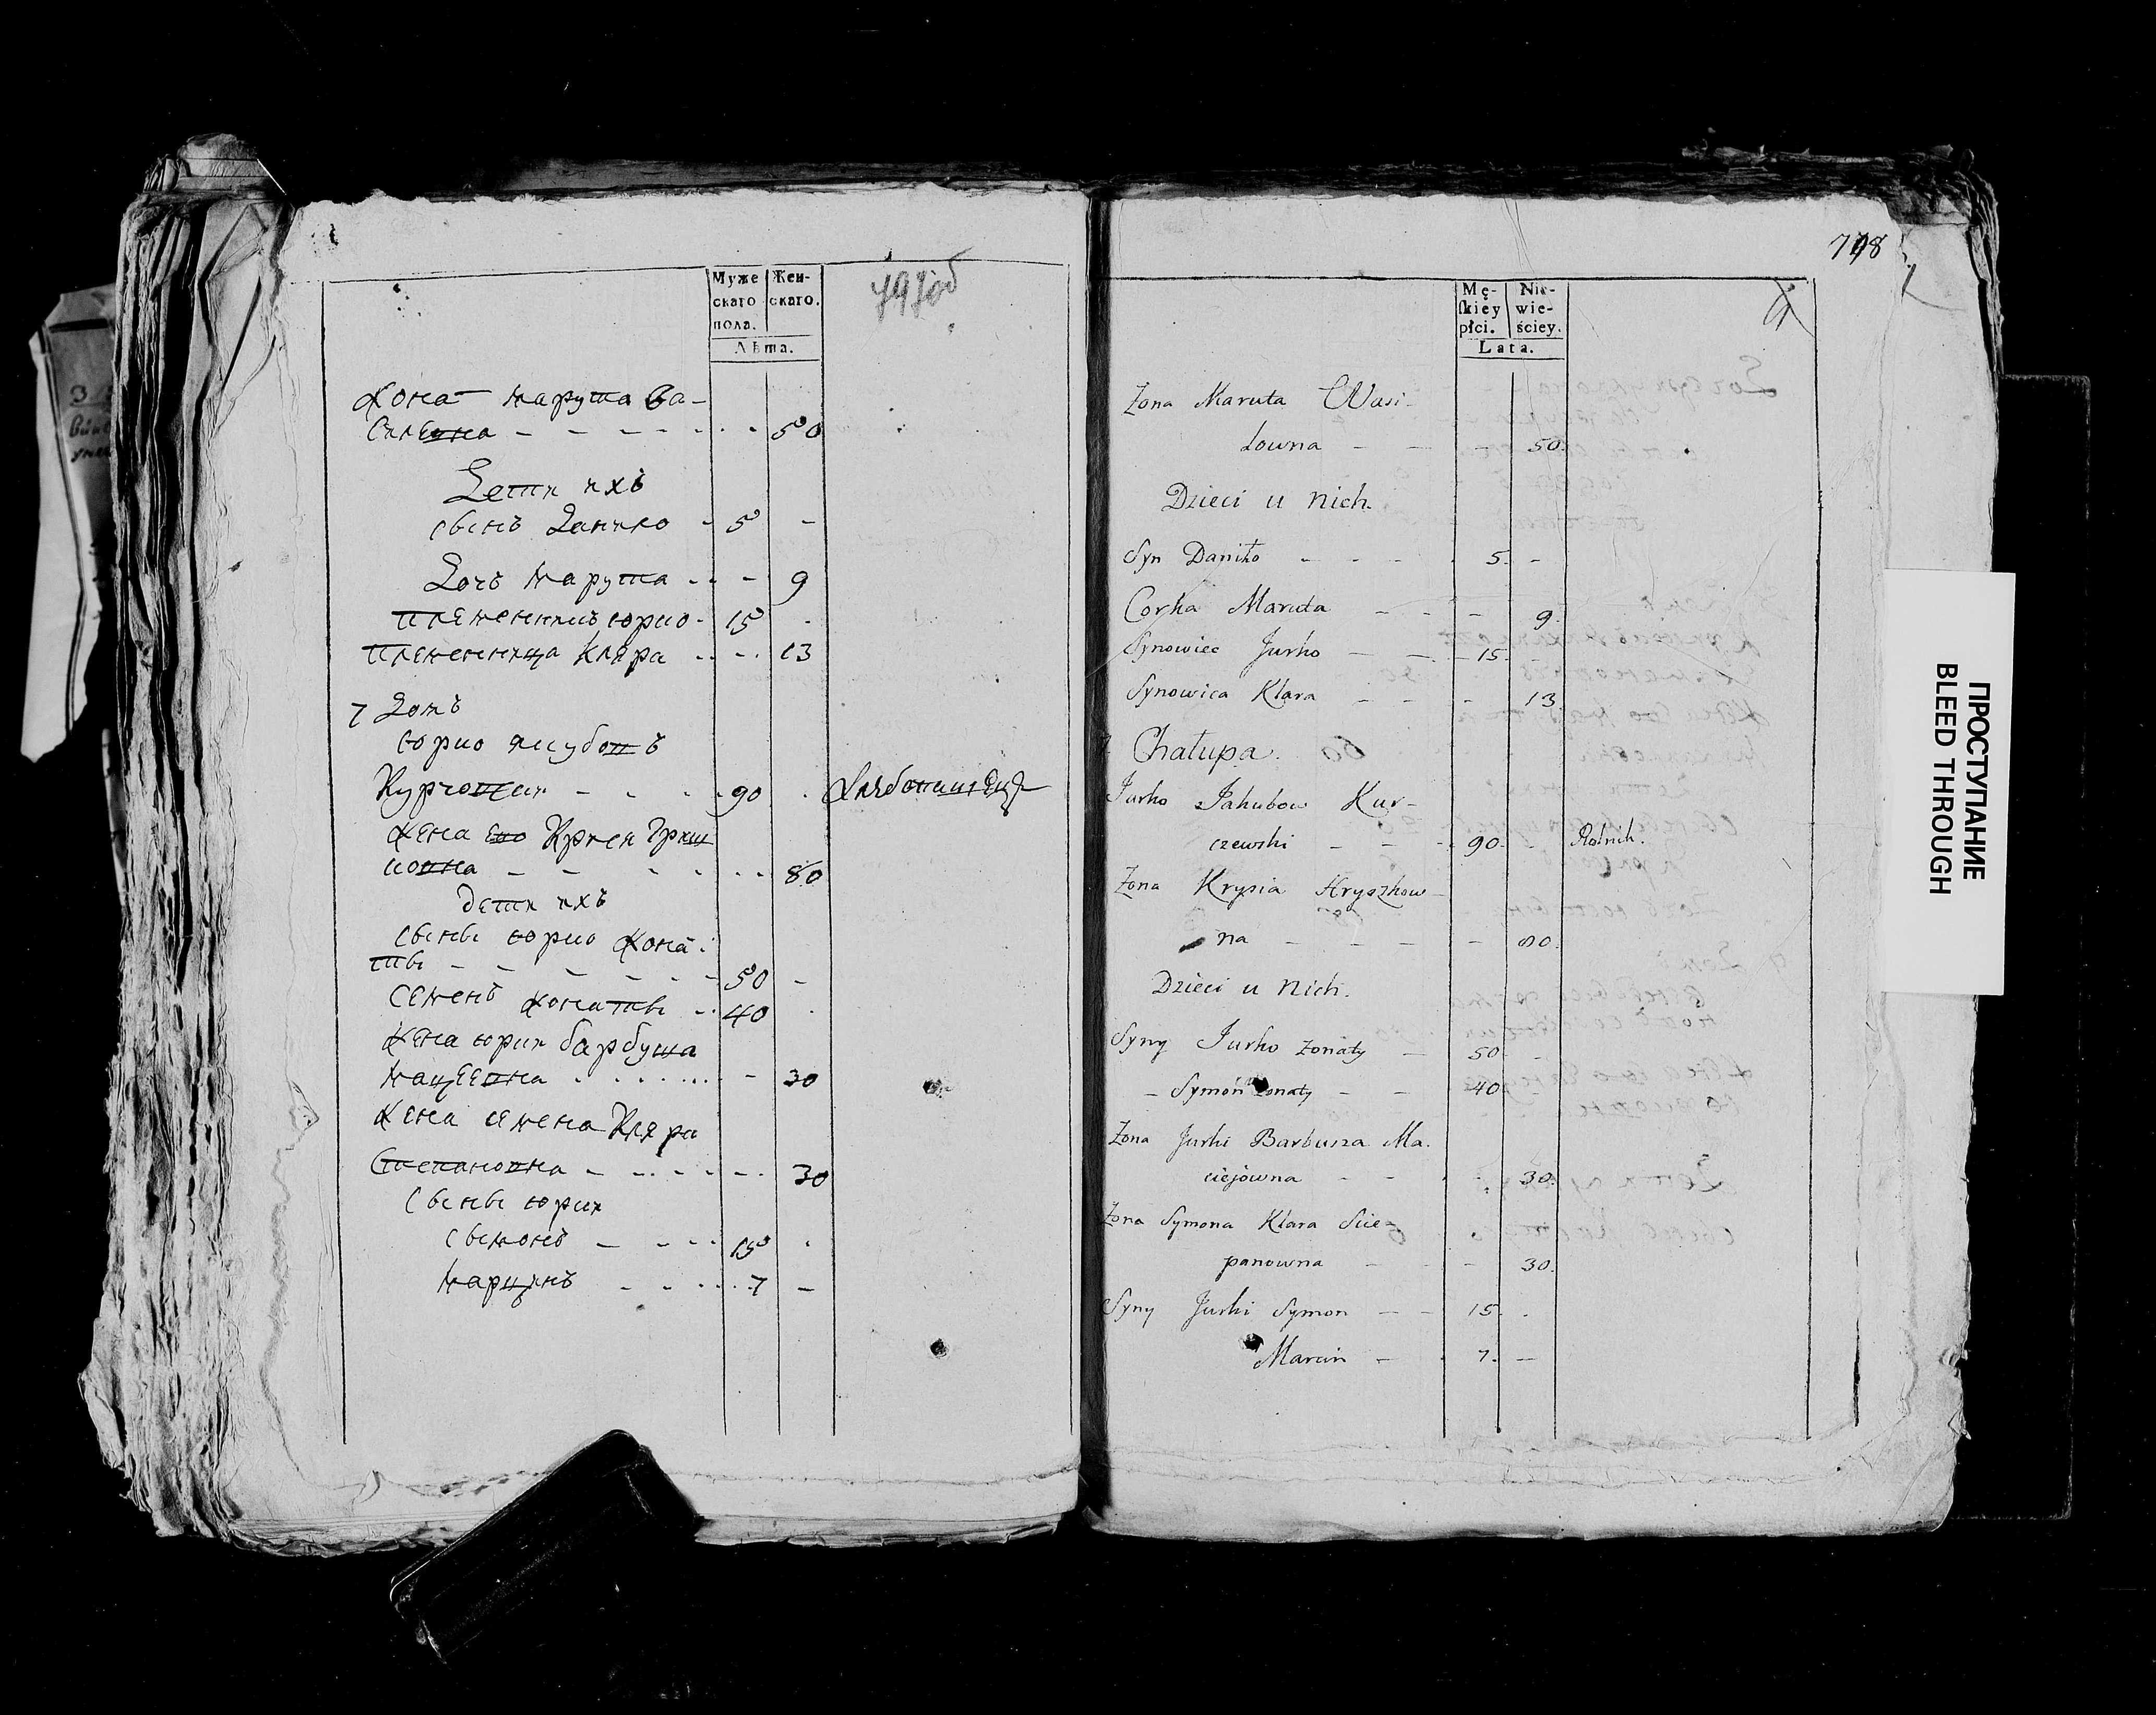 Муже скаго пола.
Жен- скаго.
Лѣта.
Жона марута ва-
силевна - - - - - - 50
Дети ихъ
сынъ Данило - 5 -
Дочъ марута - - 9
племенникъ юрко - 15 -
племенница Кляра - - 13
7 Домъ
юрко якубовъ
Курчевски - - - 90 - Хлебопашецъ
жена ево Крися Гриш
ковна - - - - - 80
дети ихъ
сыны юрко жона-
ты - - - - - 50 -
семенъ жонаты - 40 -
жена юрки барбуша
мацеевна - - - 30
жена семена Кляра
степановна - - - - 30
сыны юрки
сымонъ - - - 15 -
марцинъ - - - 7 -
718
Mę- skiey płci.
Nie- wie- ściey.
Lata.
Zona Maruta Wasi-
lowna - - - 50.
Dzieci u nich.
Syn Daniło - - - 5. -
Corka Maruta - - - 9.
Synowiec Jurko - - 15.
Synowica Klara - - - 13
7 Chałupa.
Jurko Jakubow Kur-
czewski - - - 90. - Rolnik.
Zona Krysia Hryszkow-
na - - - - 80.
Dzieci u nich.
Syny Jurko zonaty - 50 -
- Symon zonaty - - 40
Zona Jurki Barbusza Ma-
ciejowna - - - 30.
Zona Symona Klara Scie-
panowna - - 30.
Syny Jurki Symon - - 15. -
Marcin - 7. -
ПРОСТУПАНИЕ
BLEED THROUGH